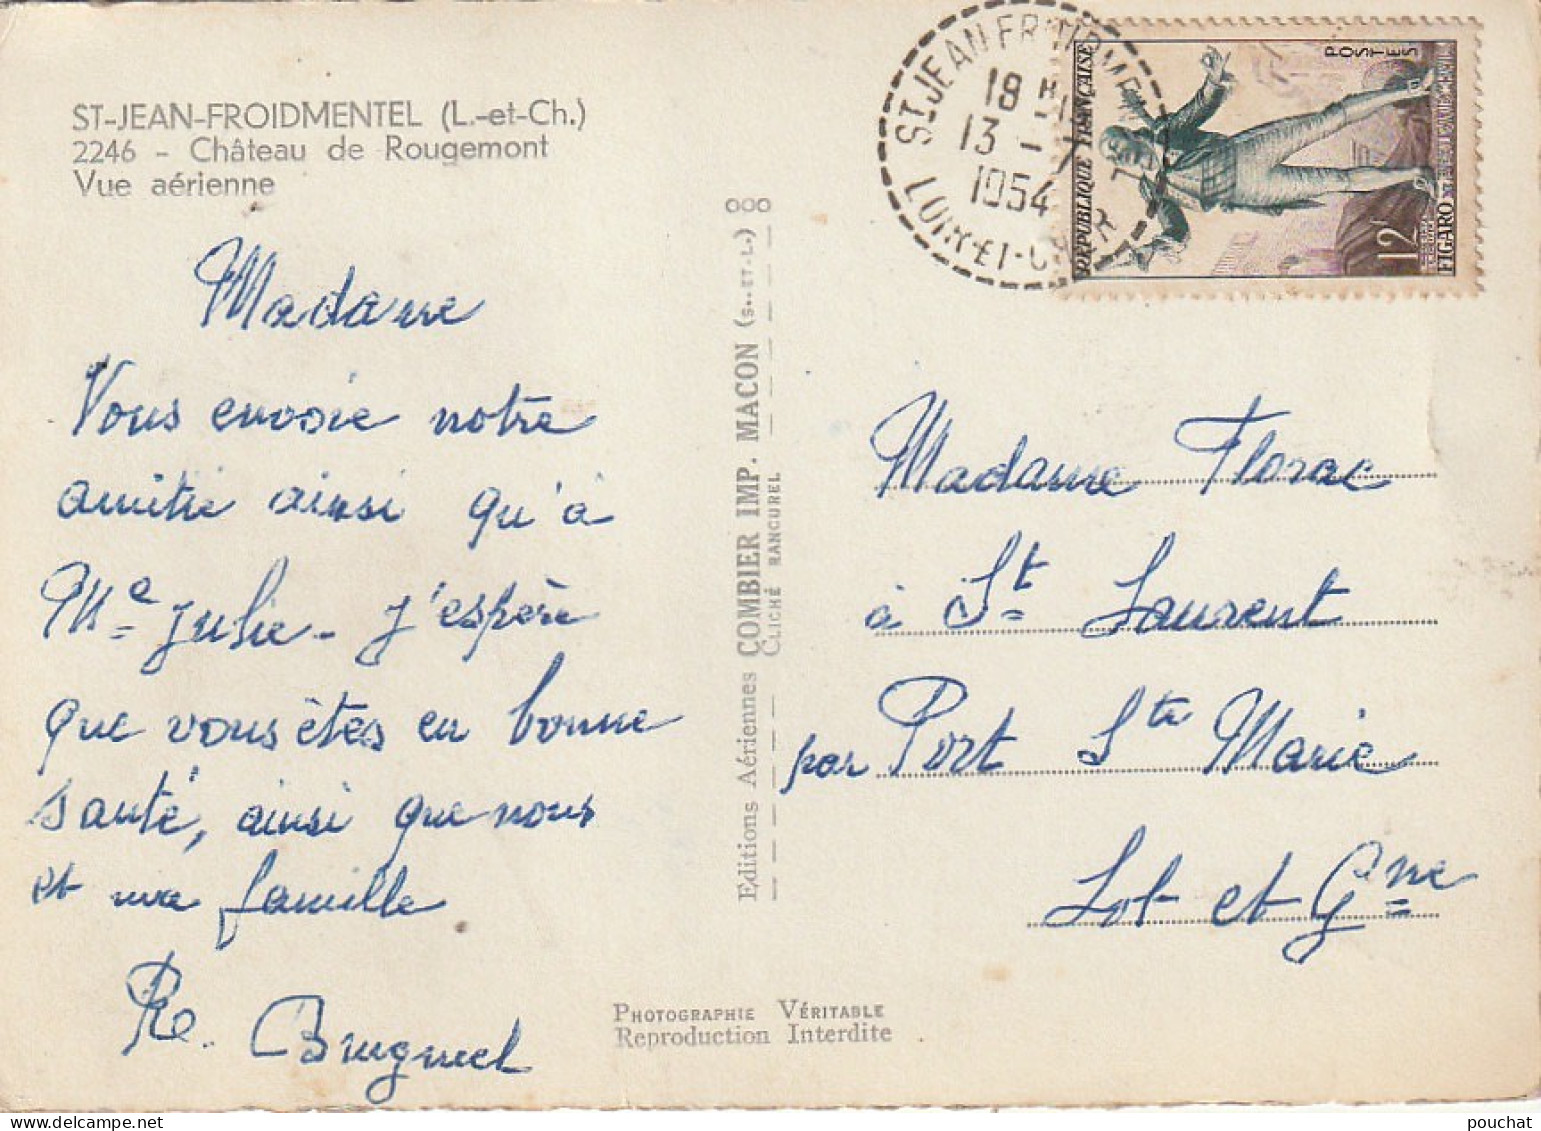 ST-JEAN-FROIDMENTEL (L.-et-Ch.)
2246 - Château de Rougemont
Vue aérienne
Madame
Vous envoie notre
amitié ainsi qu'à
Me Julie - J'espère
que vous êtes en bonne
santé, ainsi que nous
et ma famille
Re. Brugnuel
Editions Aériennes COMBIER IMP. MACON (S.-ET-L.)
CLICHÉ RANCUREL
PHOTOGRAPHIE VÉRITABLE
Reproduction Interdite
ST JEAN FROIDMENTEL
18 H
13 - 7
1954
LOIR-ET-CHER
REPUBLIQUE FRANÇAISE
POSTES
12F
FIGARO
Madame Florac
à St Laurent
par Port Ste Marie
Lot et Gne
pouchat